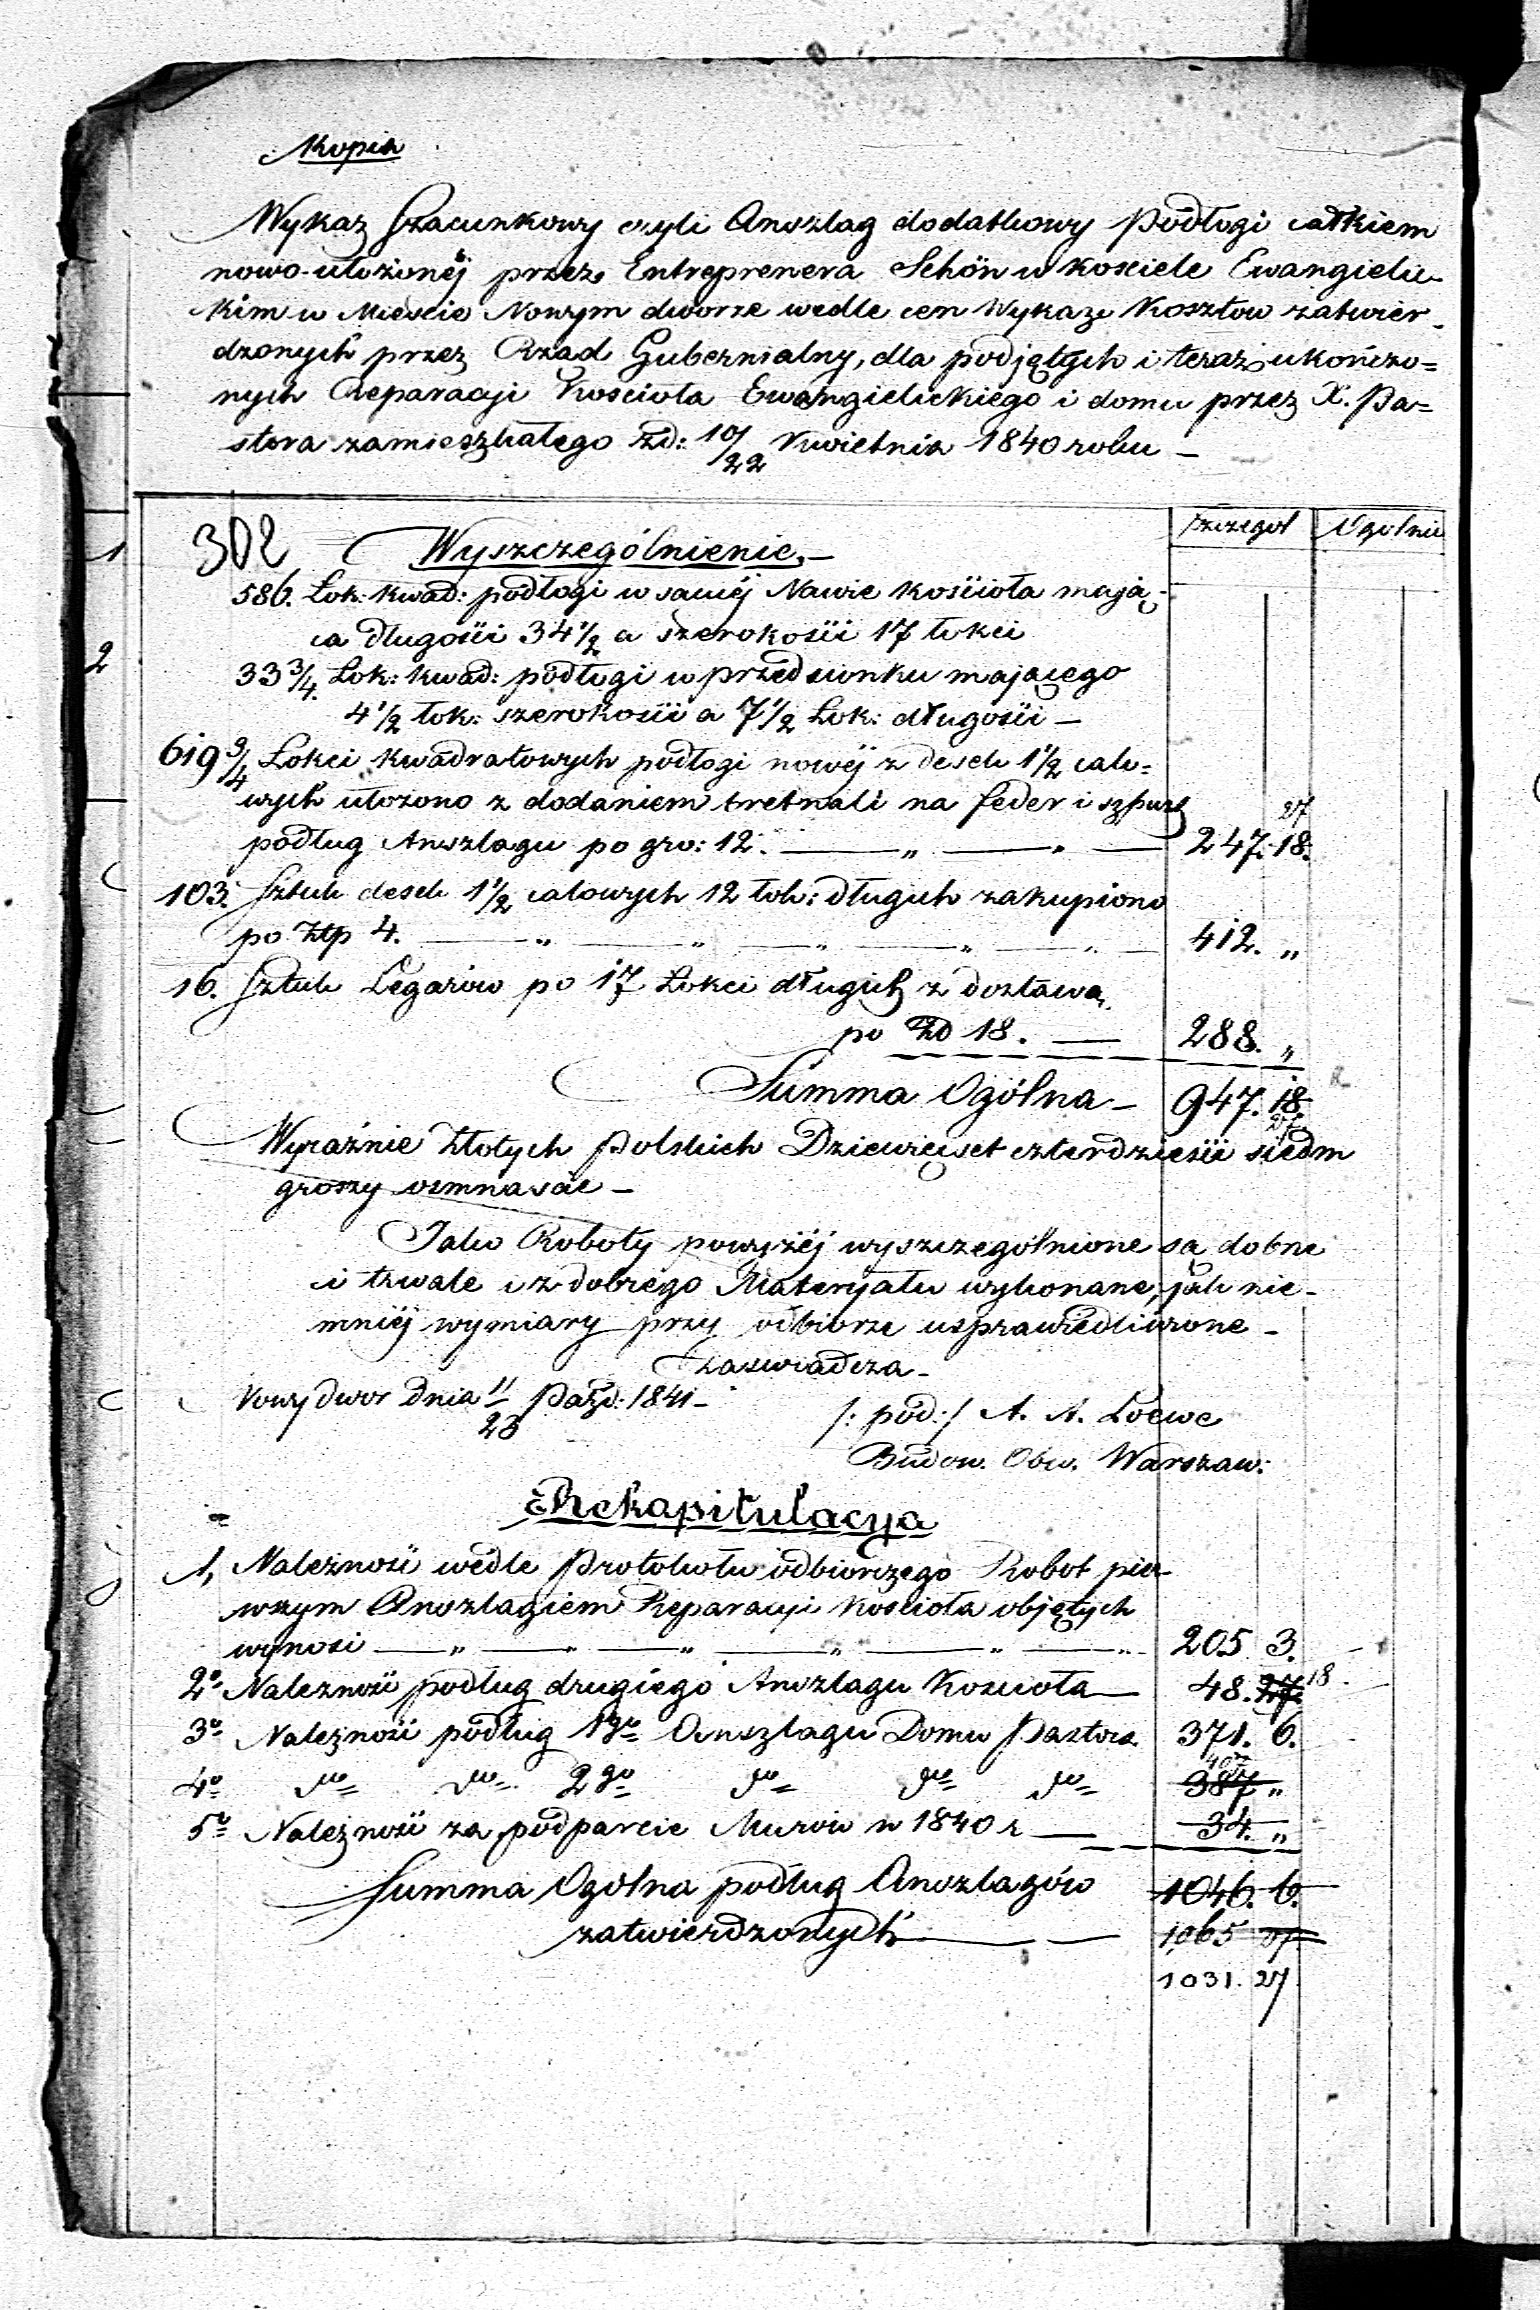 Kopia
Wykaz Szacunkowy czyli Anszlag dodatkowy Podłogi całkiem
nowo-ułożonéj przez Entreprenera Schön w kosciele Ewangielic-
kim w Miescie Nowym dworze wedle cen Wykazu Kosztow zatwier-
dzonych przez Rząd Gubernialny, dla podjętych i teraz ukończo=
nych Reparacyi Kosciola Ewangielickiego i domu przez X. Pa=
stora zamieszkałego zd: 10/22 Kwietnia 1840 roku —
Szczegol Ogolnie
1 302 Wyszczególnienie. —
586. Łok: kwad: podłogi w saméj Nawie kościoła mają-
ca długości 34 1/2 a szerokości 17 łokci
2 33 3/4. Łok: kwad: podługi w przedsionku mającego
4 1/2 łok: szerokości a 7 1/2 Łok: długości —
619 3/4 Łokci kwadratowych podłogi nowéj z desek 1 1/2 calo=
wych ułozono z dodaniem bretnali na feder i szpunt 27
podług Anszlagu po gro: 12. — „ — „ — 247. 18.
103. Sztuk desek 1 1/2 calowych 12 łok: długich zakupiono
po Złp 4. — „ — „ — „ — „ — „ — 412. „
16. Sztuk Legarów po 17 Łokci długich z dostawą
po Zł 18. — 288. „
Summa Ogólna — 947. 18.
27
Wyraźnie Złotych Polskich Dziewięset czterdzieści siedm
groszy osmnascie —
Jako Roboty powyżéj wyszczególnione są dobre
i trwale i z dobrego Materyału wykonane, jak nie-
mniéj wymiary przy odbiorze usprawiedliwione —
zaswiadcza —
Nowy dwor Dnia 11/23 Pazd: 1841 —
/: pod:/ A. A. Loewe
Budow. Obw. Warszaw:
Rekapitulacya
1, Należność wedle Protokołu odbiorczego Robot pier-
wszym Anszlagiem Reparacyi Kosciola objętych
wynosi — „ — „ — „ — „ — „ — „ 205 3.
2º Należność podług drugiego Anszlagu Kosciola — 48. 27. 18
3º Należność podług 1go Anszlagu Domu Pastora 371. 6.
4º do do 2go do do do 387 „
5º Należność za podparcie Murow w 1840 r — 34. „
Summa Ogólna podług Anszlagów 1046. 6.
zatwierdzonych — — 1065 27
1031. 27